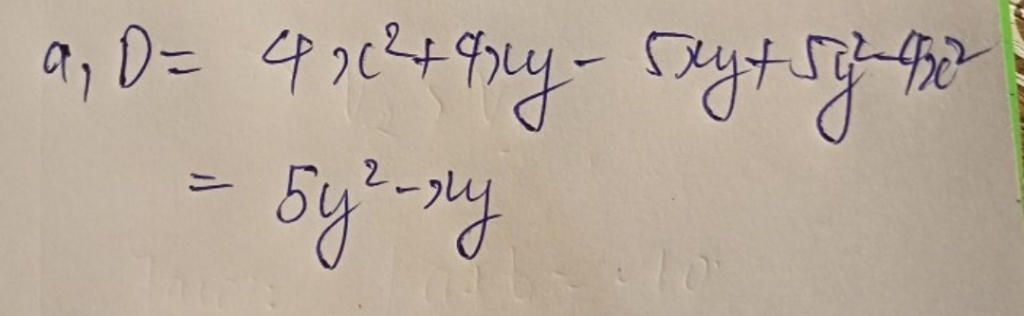 a, D = 4x²+4xy - 5xy+5y²-4x²
= 5y²-xy